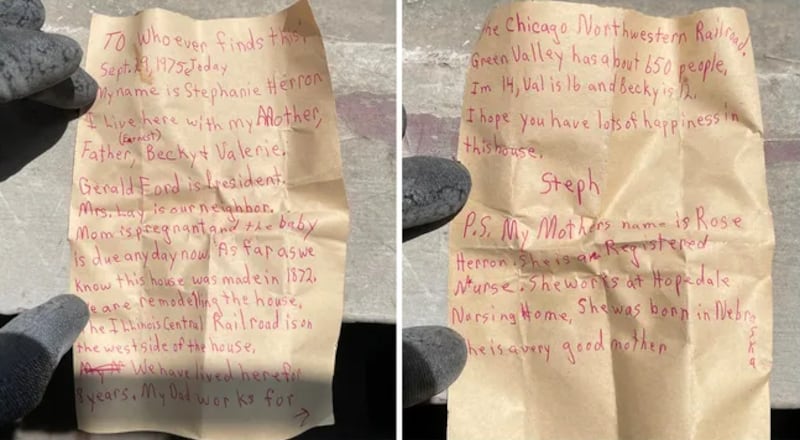 TO Whoever finds this,
Sept. 29, 1975, Today
My name is Stephanie Herron
I Live here with my Mother,
(Earnest)
Father, Becky + Valerie.
Gerald Ford is President.
Mrs. Lay is our neighbor.
Mom is pregnant and the baby
is due any day now. As far as we
Know this house was made in 1872.
We are remodelling the house.
The Illinois Central Railroad is on
the west side of the house.
We have lived here for
8 years. My Dad works for →
The Chicago Northwestern Railroad.
Green Valley has about 650 people,
Im 14, Val is 16 and Becky is 12.
I hope you have lots of happiness in
this house.
Steph
P.S. My Mothers name is Rose
Herron. She is a Registered
Nurse. She works at Hopedale
Nursing Home, She was born in Nebraska
She is a very good mother